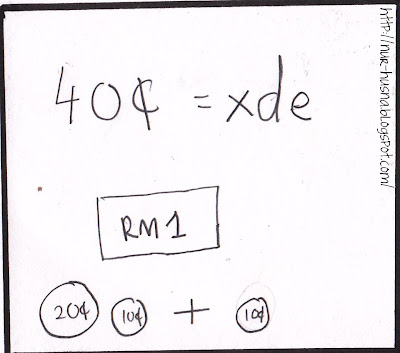 40¢ = xde
RM1
20¢ 10¢ + 10¢
http://nur-husna.blogspot.com/